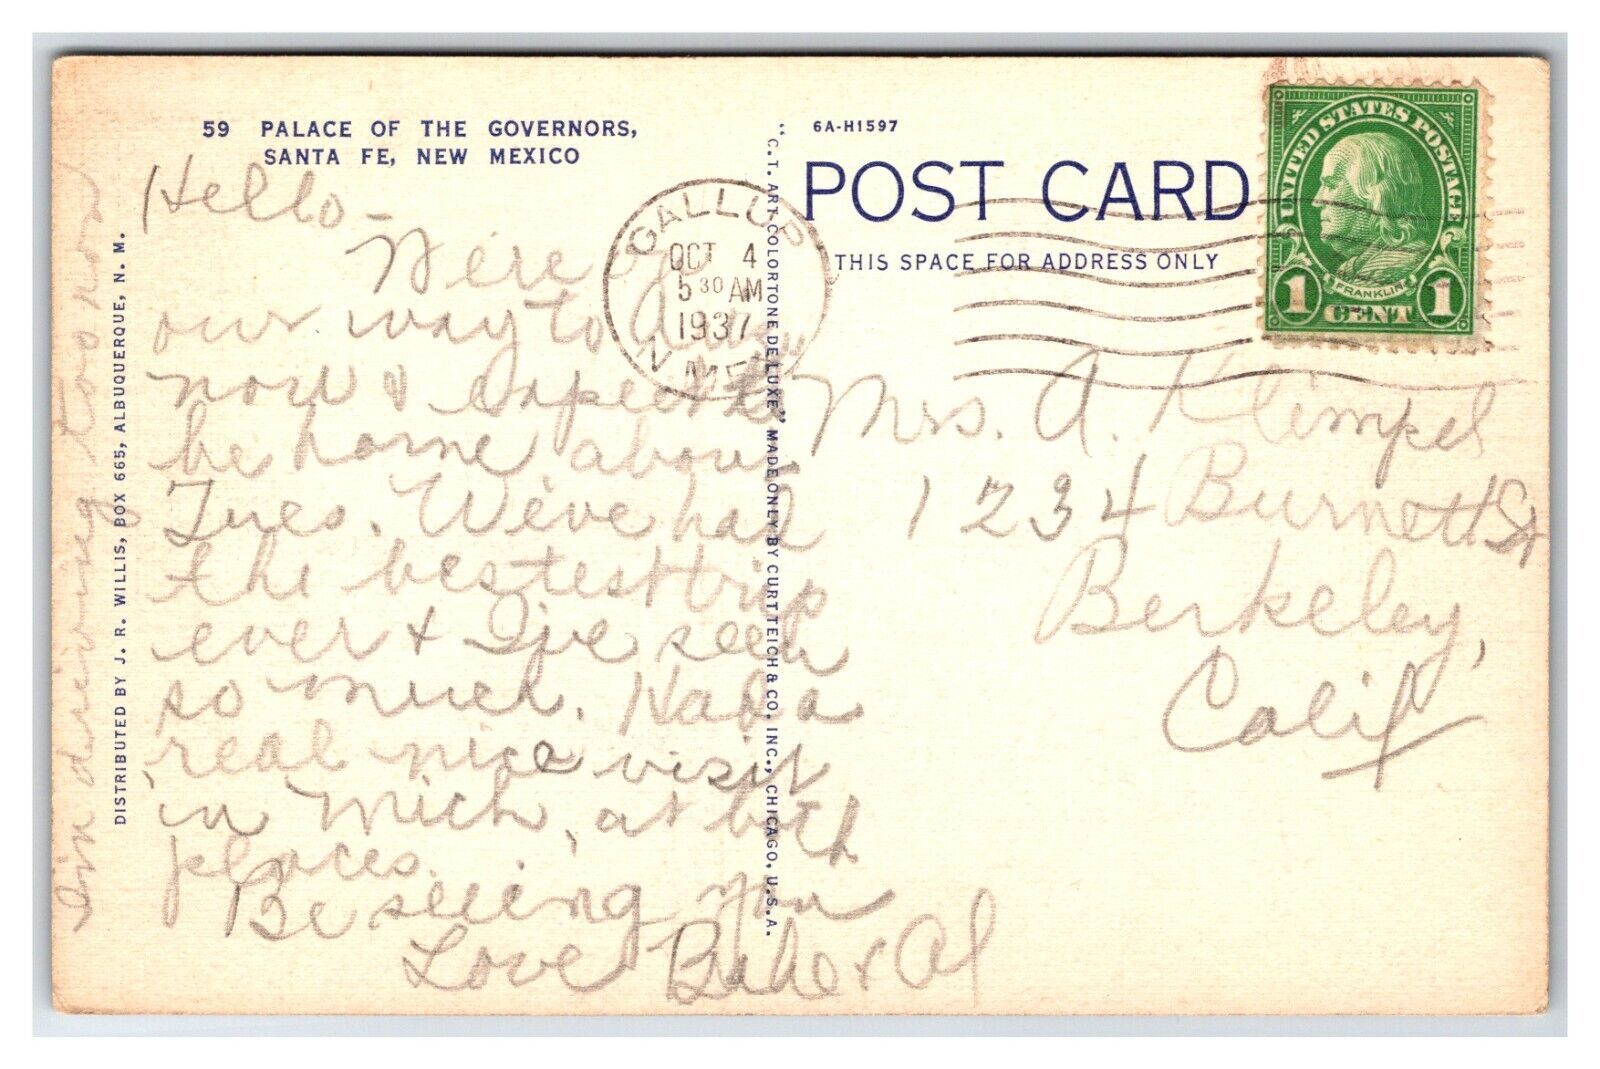 59 PALACE OF THE GOVERNORS,
SANTA FE, NEW MEXICO
Hello -
We're on
our way to
now & expect to
be home about
Tues. We've had
the bestest trip
ever & I've seen
so much. Had a
real nice visit
in Mich, at both
places.
Be seeing you
Love Babe & Al
I'm driveing too now
DISTRIBUTED BY J. R. WILLIS, BOX 665, ALBUQUERQUE, N. M.
"C.T. ART-COLORTONE DE LUXE", MADE ONLY BY CURT TEICH & CO., INC., CHICAGO, U.S.A.
6A-H1597
POST CARD
THIS SPACE FOR ADDRESS ONLY
GALLUP
OCT 4
5 30 AM
1937
N. MEX
UNITED STATES POSTAGE
FRANKLIN
1 CENT 1
Mrs. A. Klimpel
1234 Burnett St
Berkeley,
Calif